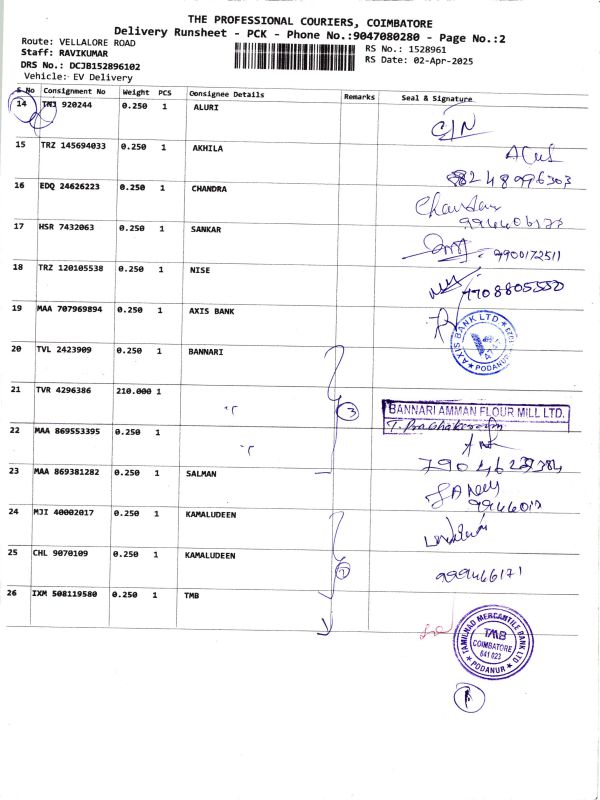 THE PROFESSIONAL COURIERS, COIMBATORE
Delivery Runsheet - PCK - Phone No.:9047080280 - Page No.:2
Route: VELLALORE ROAD
RS No.: 1528961
Staff: RAVIKUMAR
RS Date: 02-Apr-2025
DRS No.: DCJB152896102
Vehicle: EV Delivery
S No Consignment No Weight PCS Consignee Details Remarks Seal & Signature
14 TNJ 920244 0.250 1 ALURI
15 TRZ 145694033 0.250 1 AKHILA
8248996303
16 EDQ 24626223 0.250 1 CHANDRA
17 HSR 7432063 0.250 1 SANKAR
9900172511
18 TRZ 120105538 0.250 1 NISE
7708805550
19 MAA 707969894 0.250 1 AXIS BANK
AXIS BANK LTD PODANUR
20 TVL 2423909 0.250 1 BANNARI
21 TVR 4296386 210.000 1 3
BANNARI AMMAN FLOUR MILL LTD.
22 MAA 869553395 0.250 1
23 MAA 869381282 0.250 1 SALMAN
24 MJI 40002017 0.250 1 KAMALUDEEN
25 CHL 9070109 0.250 1 KAMALUDEEN
999466171
26 IXM 508119580 0.250 1 TMB
TAMILNAD MERCANTILE BANK LTD
TMB
COIMBATORE
641 023
PODANUR